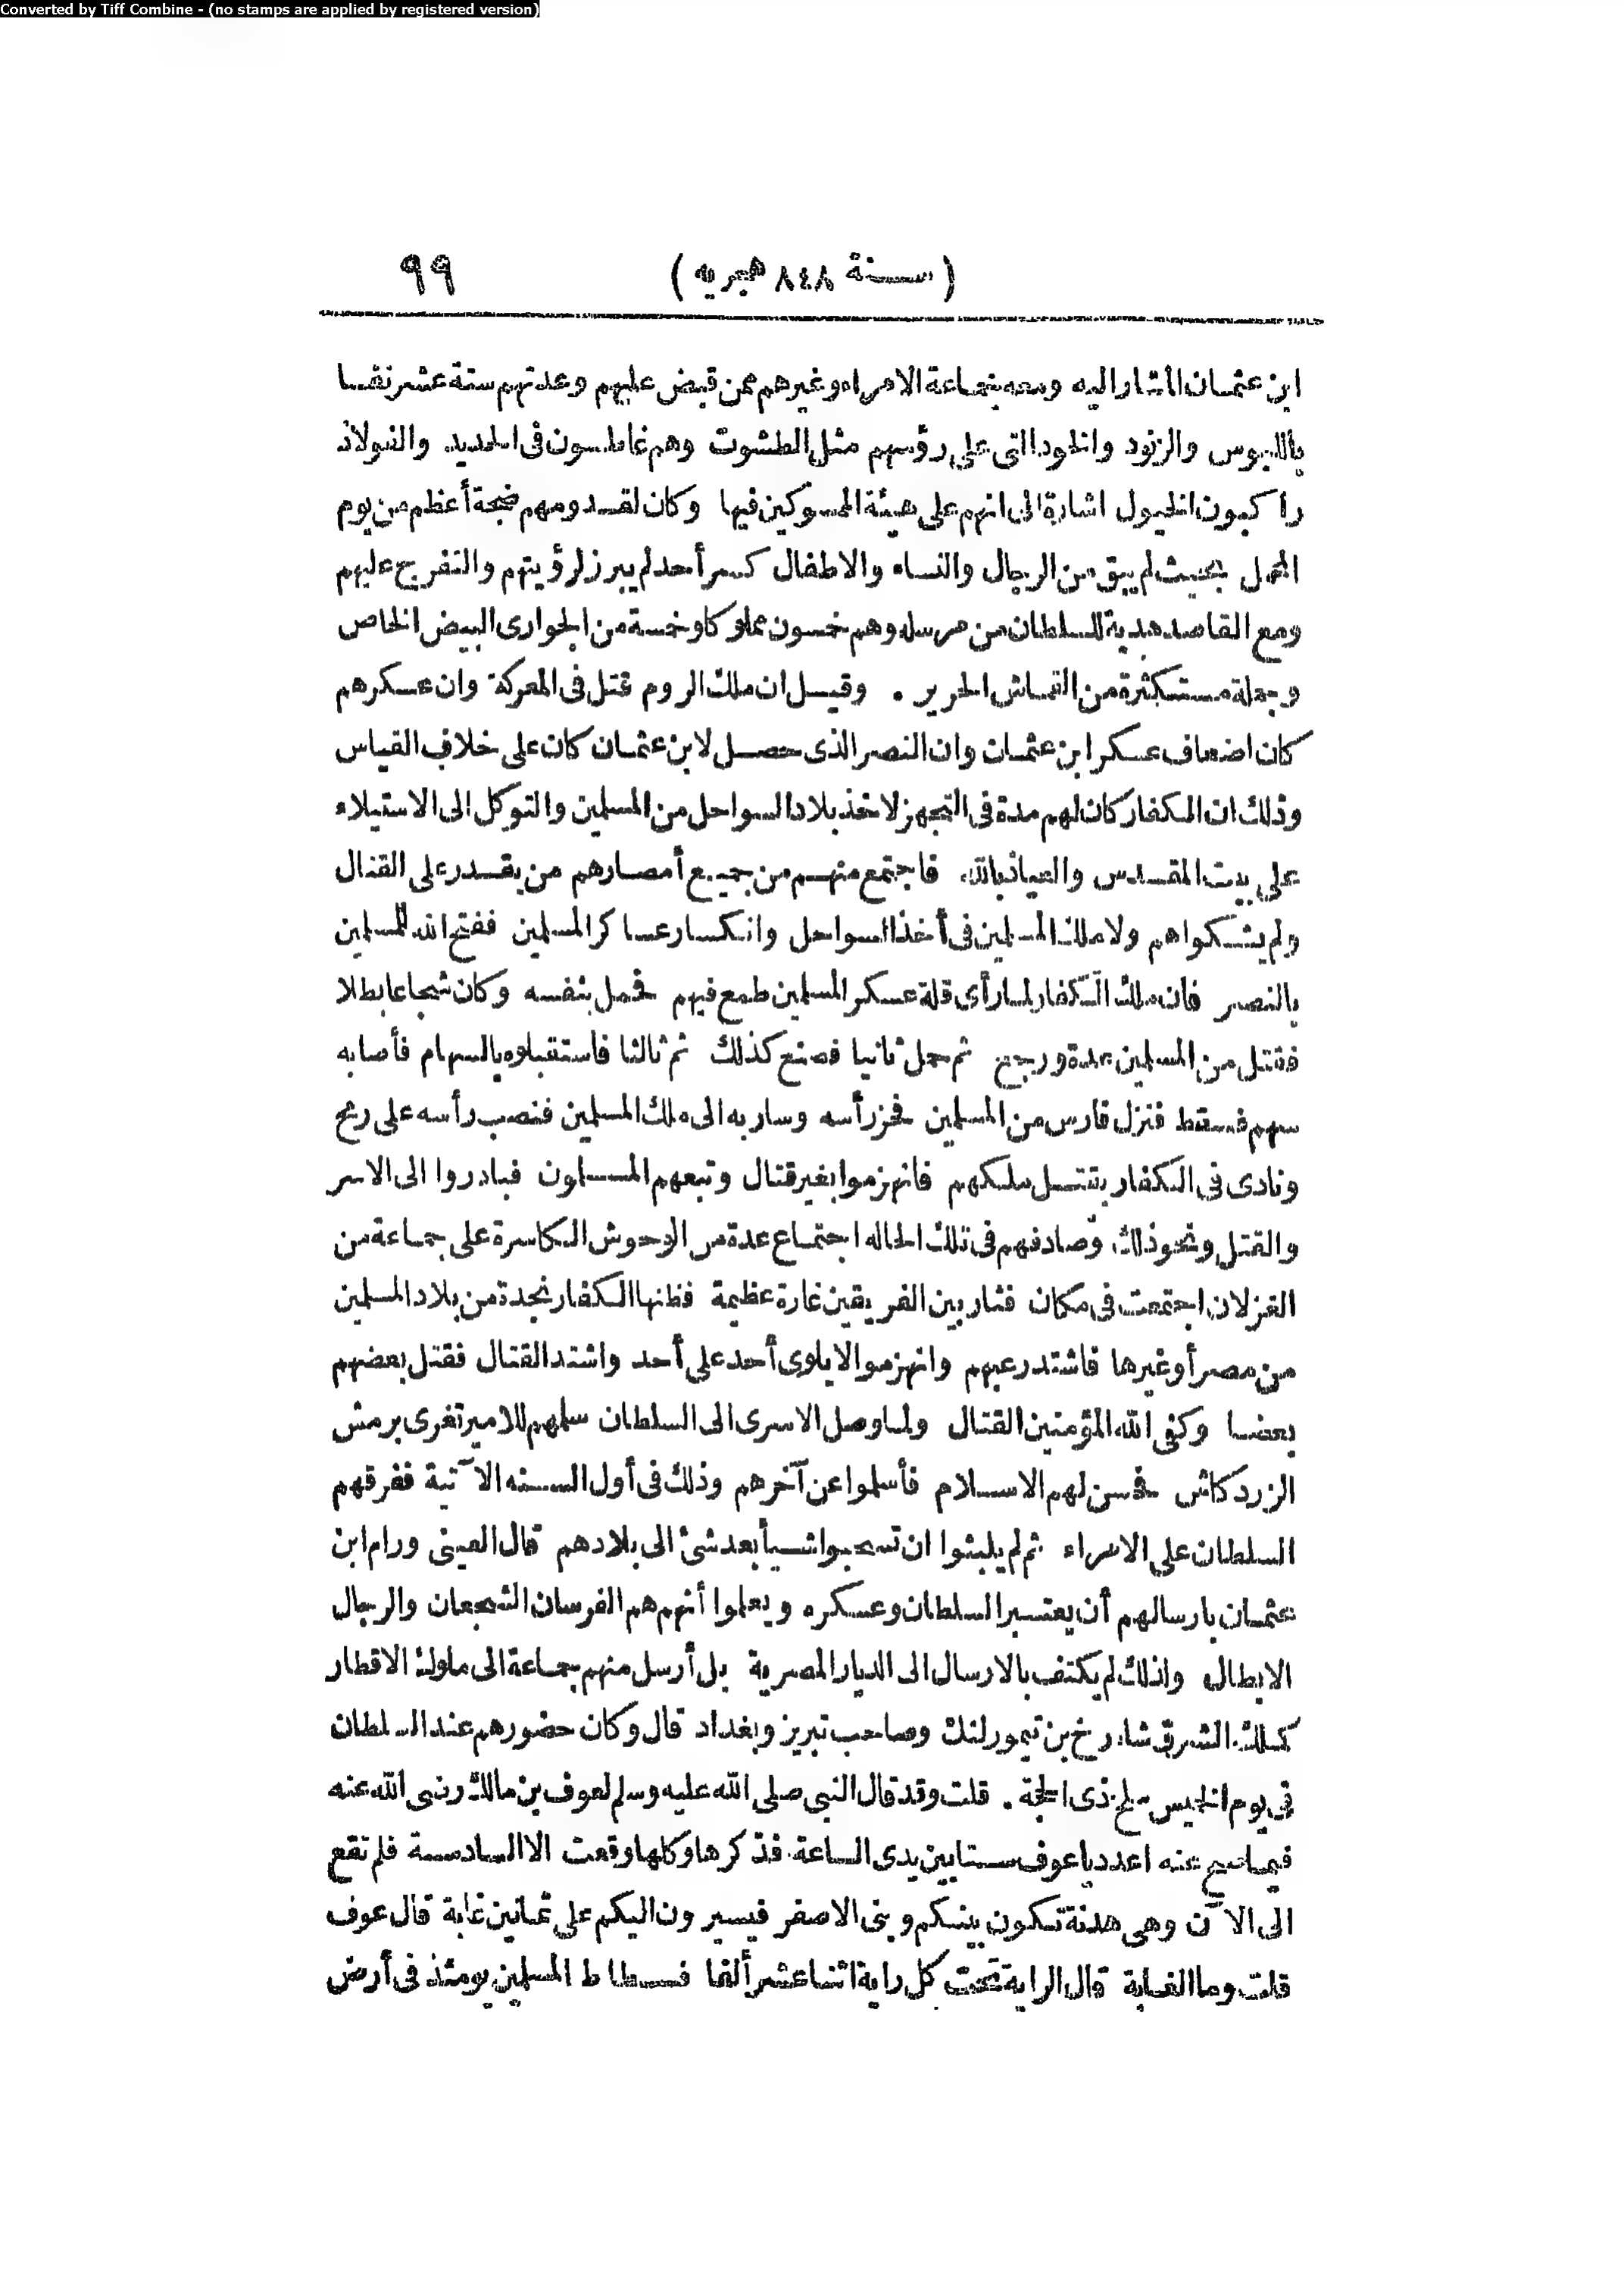 Converted by Tiff Combine - (no stamps are applied by registered version)
(سنة ٨٤٨ هجريه) ٩٩
ابن عثمان المشار اليه ومعه بجماعة الامراء وغيرهم ممن قبض عليهم وعدتهم ستة عشر نفسا
باللبوس والزنود والخود التى على رؤسهم مثل الطشوت وهم غاطسون فى الحديد والفولاذ
راكبون الخيول اشارة الى انهم على هيئة الممسوكين فيها وكان لقدومهم ضجة أعظم من يوم
المحمل بحيث لم يبق من الرجال والنساء والاطفال كسر أحد لم يبرز لرؤيتهم والتفريج عليهم
ومع القاصد هدية للسلطان من مرسله وهم خمسون مملوكا وخمسة من الجوارى البيض الخاص
وجملة مستكثرة من القماش الحرير . وقيل ان ملك الروم قتل فى المعركة وان عسكرهم
كان اضعاف عسكر ابن عثمان وان النصر الذى حصل لابن عثمان كان على خلاف القياس
وذلك ان الكفار كان لهم مدة فى التجهز لاخذ بلاد السواحل من المسلمين والتوكل الى الاستيلاء
على بيت المقدس والعياذ بالله فاجتمع منهم من جميع أمصارهم من يقدر على القتال
ولم يشكوا هم ولا ملك المسلمين فى أخذ السواحل وانكسار عساكر المسلمين ففتح الله للمسلمين
بالنصر فان ملك الكفار لما رأى قلة عسكر المسلمين طمع فيهم فحمل بنفسه وكان شجاعا بطلا
فقتل من المسلمين عدة ورجع ثم حمل ثانيا فصنع كذلك ثم ثالثا فاستقبلوه بالسهام فأصابه
سهم فسقط فنزل فارس من المسلمين فحز رأسه وسار به الى ملك المسلمين فنصب رأسه على رمح
ونادى فى الكفار بقتل ملكهم فانهزموا بغير قتال وتبعهم المسلمون فبادروا الى الاسر
والقتل ونحو ذلك وصادفهم فى تلك الحاله اجتماع عدة من الوحوش الكاسرة على جماعة من
الغزلان اجتمعت فى مكان فثار بين الفريقين غارة عظيمة فظنها الكفار نجدة من بلاد المسلمين
من مصر أو غيرها فاشتد رعبهم وانهزموا لا يلوى أحد على أحد واشتد القتال فقتل بعضهم
بعضا وكفى الله المؤمنين القتال ولما وصل الاسرى الى السلطان سلمهم للامير تغرى برمش
الزردكاش فحسن لهم الاسلام فأسلموا عن آخرهم وذلك فى أول السنه الآتية ففرقهم
السلطان على الامراء ثم لم يلبثوا ان تسحبوا شيأ بعد شئ الى بلادهم قال العينى ورام ابن
عثمان بارسالهم أن يعتبر السلطان وعسكره ويعلموا أنهم هم الفرسان الشجعان والرجال
الابطال ولذلك لم يكتف بالارسال الى الديار المصرية بل أرسل منهم بجماعة الى ملوك الاقطار
كملك الشرق شاه رخ بن تيمور لنك وصاحب تبريز وبغداد قال وكان حضورهم عند السلطان
فى يوم الخميس سلخ ذى الحجة . قلت وقد قال النبى صلى الله عليه وسلم لعوف بن مالك رضى الله عنه
فيما صح عنه اعدد يا عوف ستا بين يدى الساعة فذكرها وكلها وقعت الا السادسة فلم تقع
الى الآن وهى هدنة تكون بينكم وبنى الاصفر فيسيرون اليكم على ثمانين غاية قال عوف
قلت وما الغاية قال الراية تحت كل راية اثنا عشر ألفا فسطاط المسلمين يومئذ فى أرض